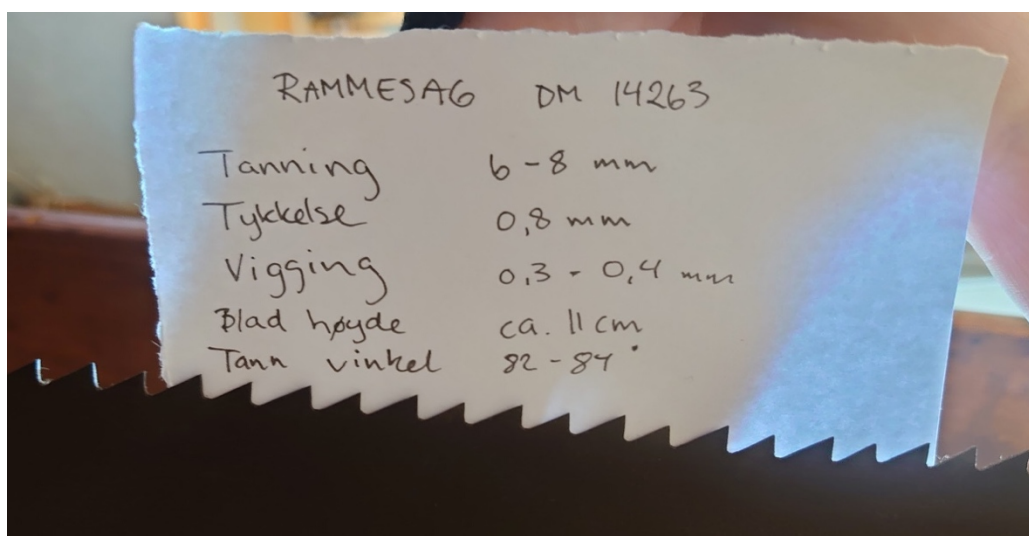 RAMMESAG DM 14263
Tanning 6-8 mm
Tykkelse 0,8 mm
Vigging 0,3 - 0,4 mm
Blad høyde ca. 11 cm
Tann vinkel 82-84°